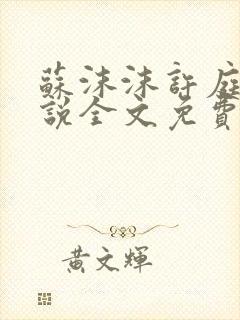 蘇沫沫許庭
說全文免費
黃文輝